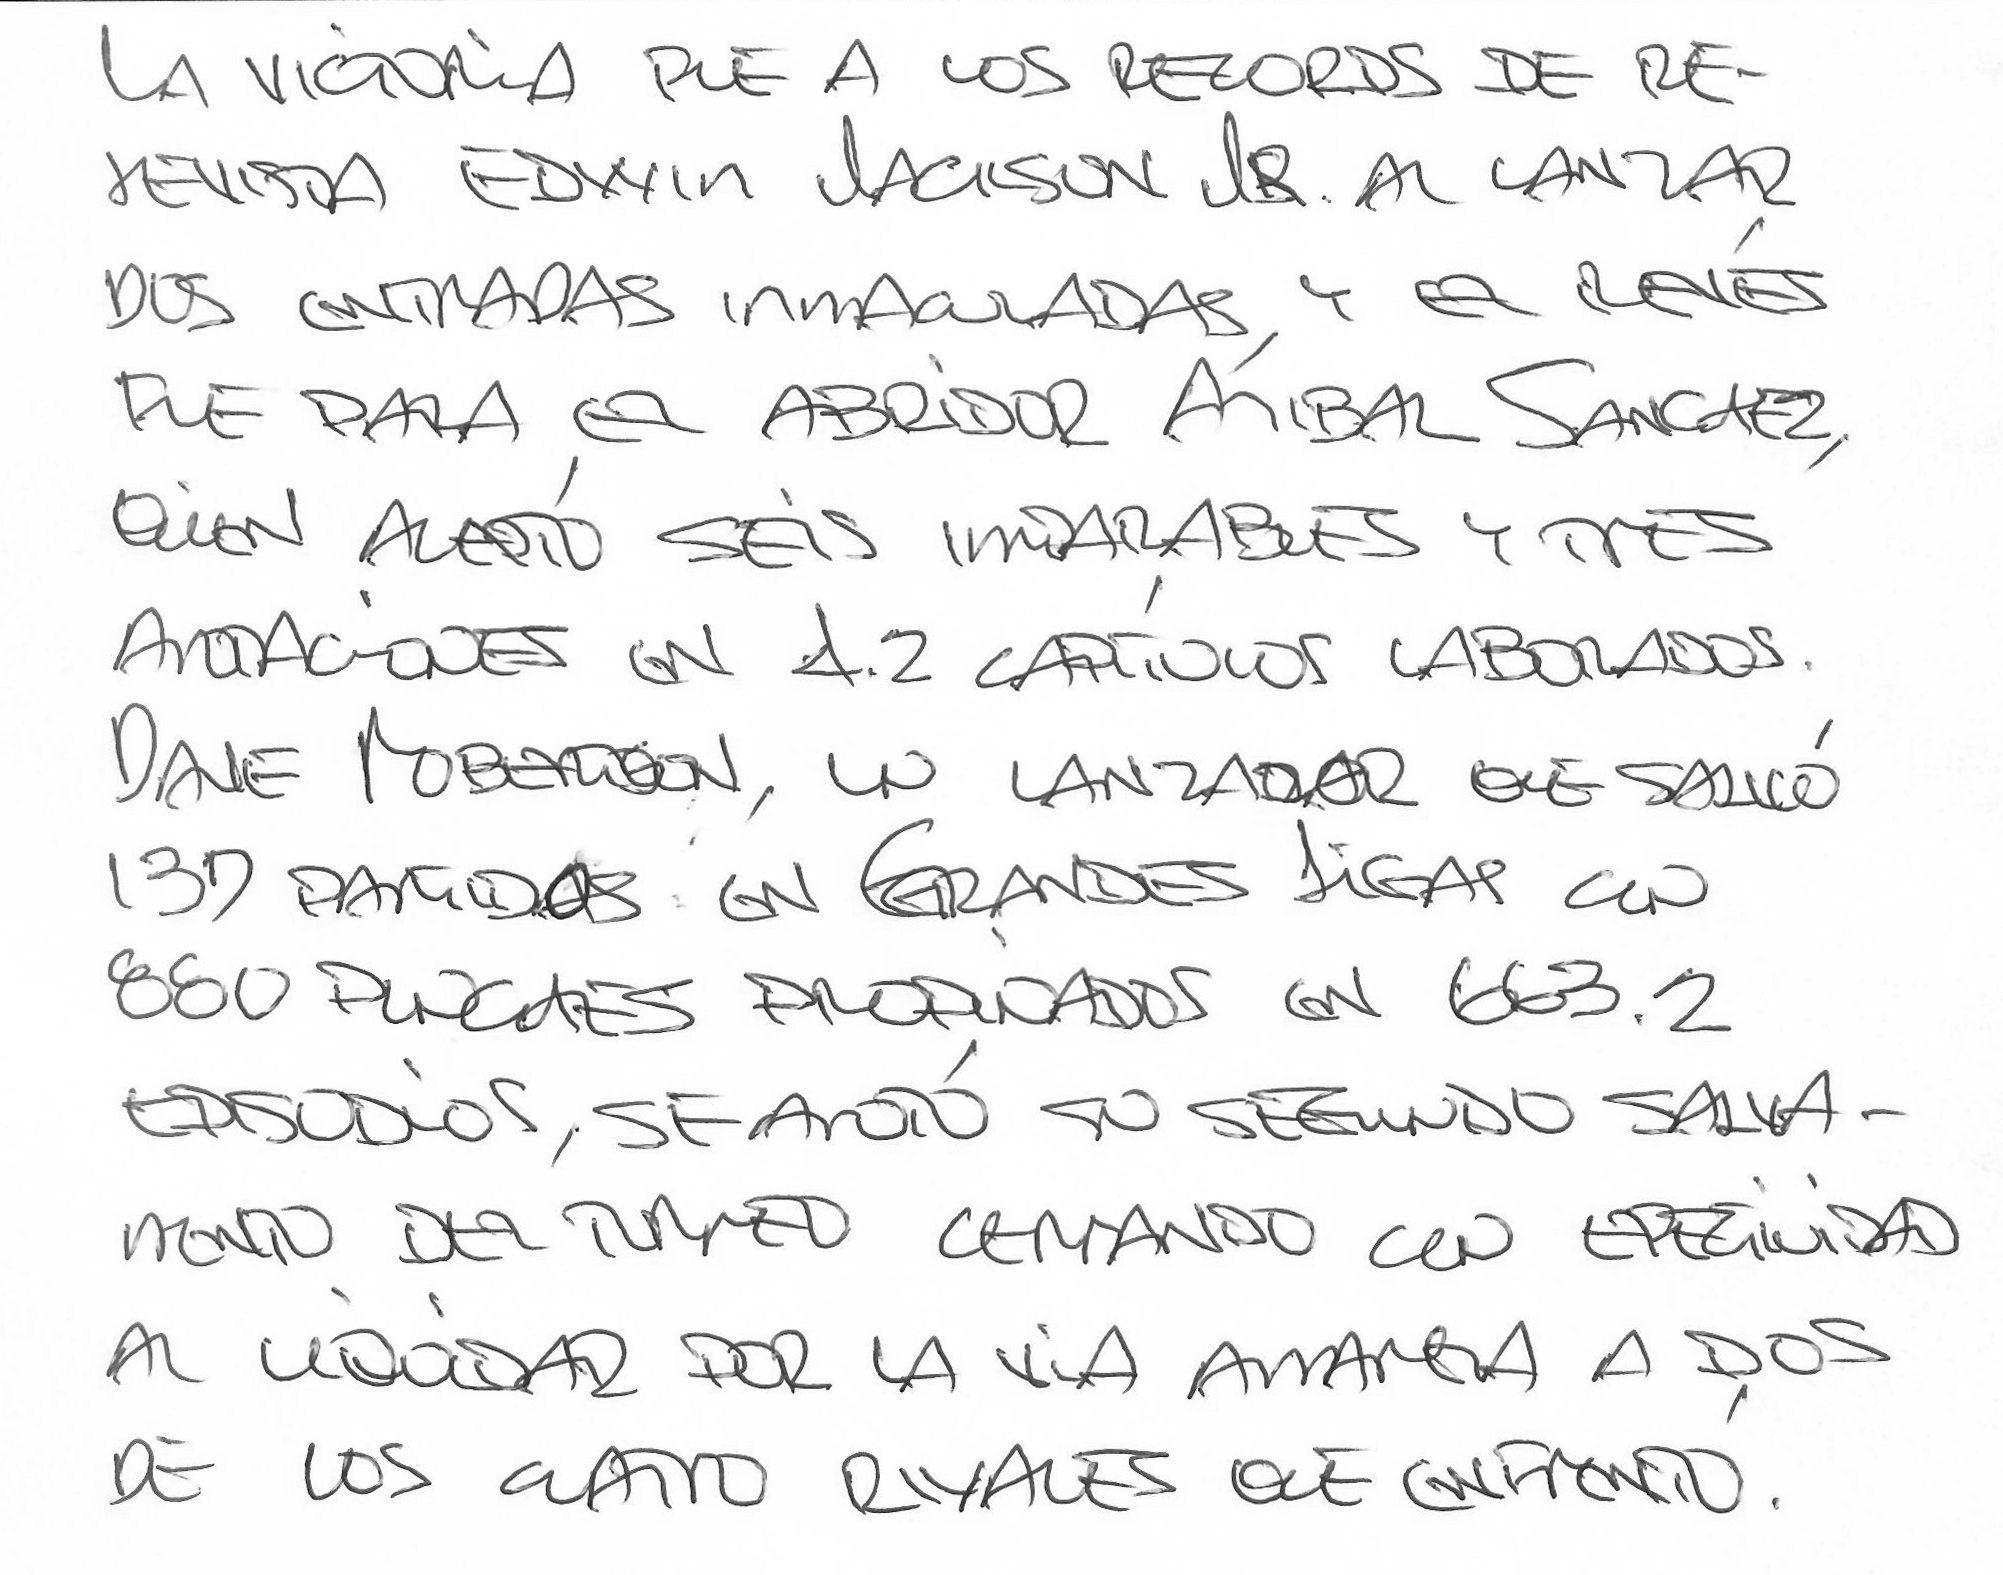 LA VICTORIA FUE A LOS RECORDS DE RE-
REVISTA EDWIN JACKSON JR. AL LANZAR
DOS ENTRADAS INMACULADAS, Y EL REVÉS
FUE PARA EL ABRIDOR ÁNIBAL SANCHEZ,
QUIEN ACEPTÓ SEIS IMPARABLES Y TRES
ANOTACIONES EN 1.2 CAPÍTULOS LABORADOS.
DAVE ROBERTSON, UN LANZADOR QUE SALVÓ
137 PARTIDOS EN GRANDES LIGAS CON
880 PUNCHES PROPINADOS EN 663.2
EPISODIOS, SE ANOTÓ SU SEGUNDO SALVA-
MENTO DEL TORNEO CERRANDO CON EFECTIVIDAD
AL LIQUIDAR POR LA VIA AMARGA A DOS
DE LOS CUATRO RIVALES QUE ENFRENTÓ.